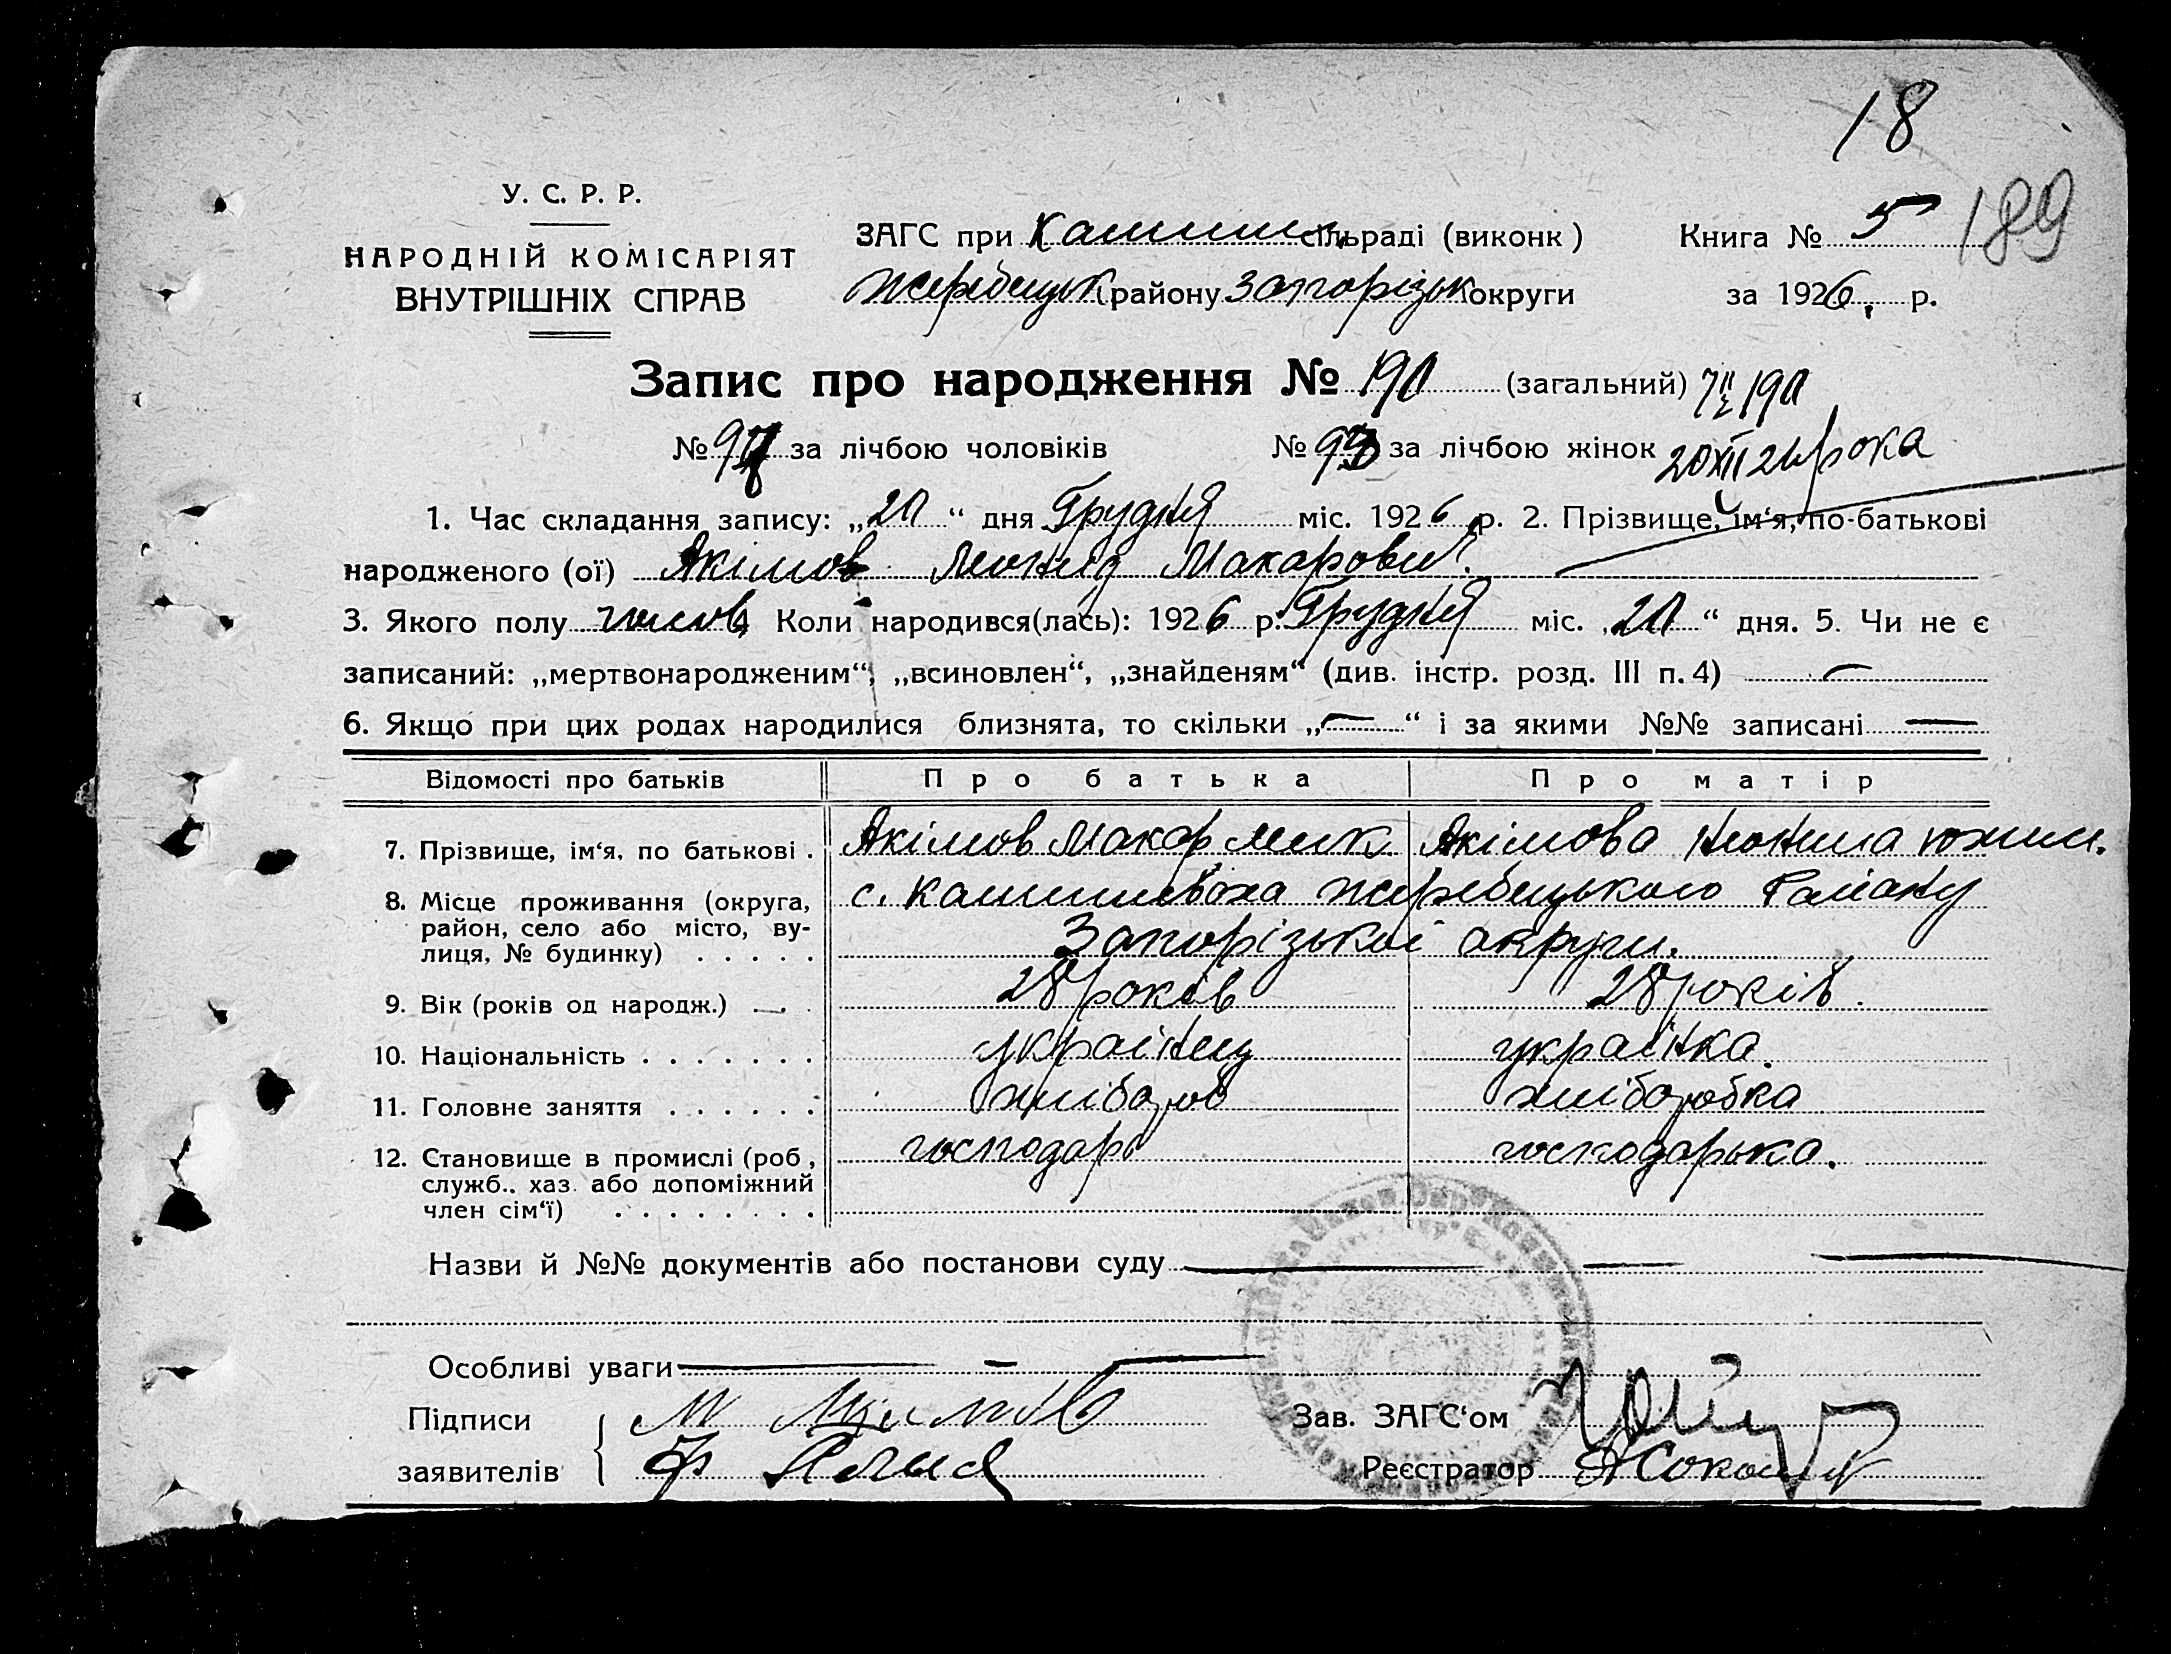 18
У. С. Р. Р.
НАРОДНІЙ КОМІСАРІЯТ
ВНУТРІШНІХ СПРАВ
ЗАГС при сільраді (виконк)
Книга № 5
189
Жеребецьк району Запорізьк округи
за 1926 р.
Запис про народження № 190 (загальний) 190
№ 97 за лічбою чоловіків
№ 93 за лічбою жінок
20 XII 26 рока
1. Час складання запису: „20“ дня Грудня міс. 1926 р. 2. Прізвище, ім‘я, по-батькові
народженого (ої) Акімов Леонід Макарович.
3. Якого полу чолов. Коли народився(лась): 1926 р. Грудня міс. „20“ дня. 5. Чи не є
записаний: „мертвонародженим“, „всиновлен“, „знайденям“ (див. інстр. розд. III п. 4) —
6. Якщо при цих родах народилися близнята, то скільки „—“ і за якими №№ записані —
Відомості про батьків Про батька Про матір
7. Прізвище, ім‘я, по батькові . Акімов Макар Мик Акімова
8. Місце проживання (округа,
район, село або місто, вулиця, № будинку) . . . . .
с. Жеребецького Раіану
Запорізькоі округи.
9. Вік (років од народж.) 28 років 28 років.
10. Національність . . . . . . . українец українка.
11. Головне заняття . . . . . . хлібороб хліборобка
12. Становище в промислі (роб, господарь господарька.
служб., хаз. або допоміжний
член сім‘ї) . . . . . . . .
Назви й №№ документів або постанови суду —
Особливі уваги —
Підписи
заявителів
Зав. ЗАГС‘ом
Реєстратор